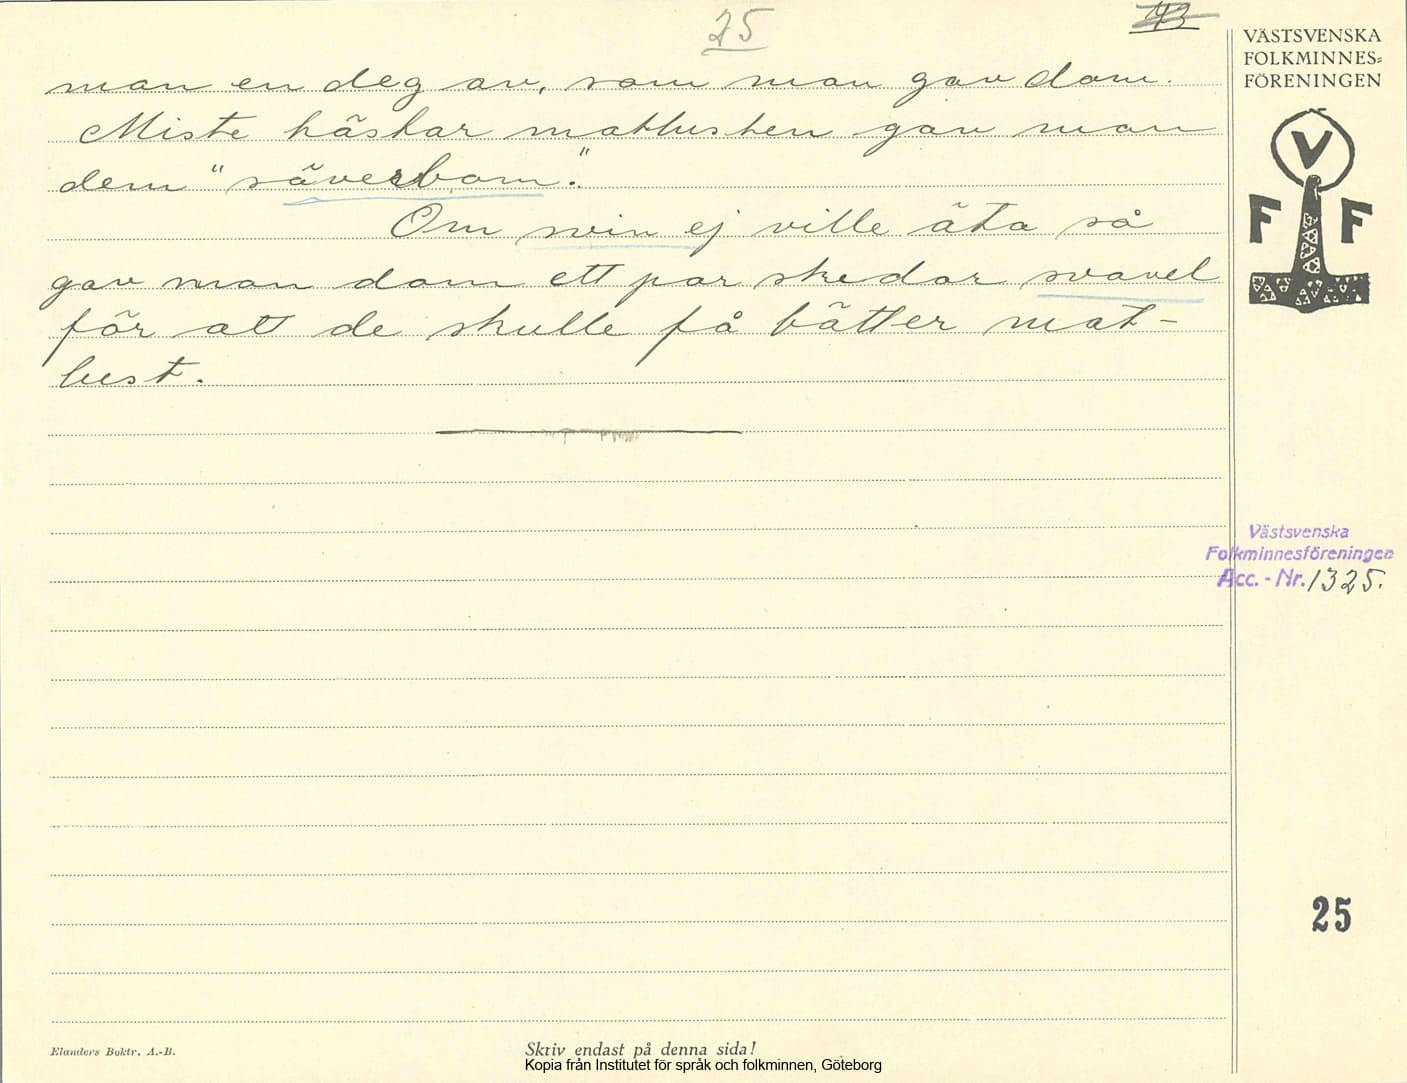 25
43
man en deg av, som man gav dom.
Miste hästar matlusten gav man
dem "säverbom".
Om svin ej ville äta så
gav man dom ett par skedar svavel
för att de skulle få bätter mat-
lust.
VÄSTSVENSKA
FOLKMINNES=
FÖRENINGEN
V
F F
Västsvenska
Folkminnesföreningen
Acc. - Nr. 1325.
25
Elanders Boktr. A.-B.
Skriv endast på denna sida!
Kopia från Institutet för språk och folkminnen, Göteborg